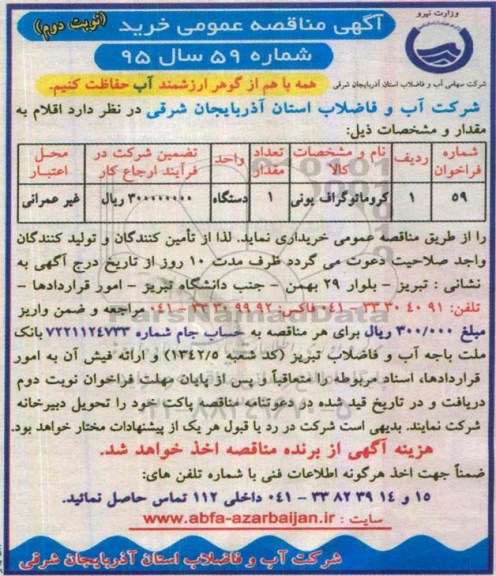 وزارت نیرو
شرکت سهامی آب و فاضلاب استان آذربایجان شرقی
آگهی مناقصه عمومی خرید (نوبت دوم)
شماره ۵۹ سال ۹۵
همه با هم از گوهر ارزشمند آب حفاظت کنیم.
شرکت آب و فاضلاب استان آذربایجان شرقی در نظر دارد اقلام به
مقدار و مشخصات ذیل:
شماره فراخوان ردیف نام و مشخصات کالا تعداد مقدار واحد تضمین شرکت در فرآیند ارجاع کار محل اعتبار
۵۹ ۱ کروماتوگراف یونی ۱ دستگاه ۳۰۰۰۰۰۰۰۰ ریال غیر عمرانی
را از طریق مناقصه عمومی خریداری نماید. لذا از تأمین کنندگان و تولید کنندگان
واجد صلاحیت دعوت می گردد ظرف مدت ۱۰ روز از تاریخ درج آگهی به
نشانی : تبریز - بلوار ۲۹ بهمن - جنب دانشگاه تبریز - امور قراردادها -
تلفن: ۹۱ ۴۰ ۳۰ ۳۳ - ۰۴۱ فاکس: ۹۲ ۹۹ ۳۰ ۳۳ - ۰۴۱ مراجعه و ضمن واریز
مبلغ ۳۰۰/۰۰۰ ریال برای هر مناقصه به حساب جام شماره ۷۲۲۱۱۲۴۷۳۳ بانک
ملت باجه آب و فاضلاب تبریز (کد شعبه ۱۳۴۲/۵) و ارائه فیش آن به امور
قراردادها، اسناد مربوطه را متعاقباً و پس از پایان مهلت فراخوان نوبت دوم
دریافت و در تاریخ قید شده در دعوتنامه مناقصه پاکت خود را تحویل دبیرخانه
شرکت نمایند. بدیهی است شرکت در رد یا قبول هر یک از پیشنهادات مختار خواهد بود.
هزینه آگهی از برنده مناقصه اخذ خواهد شد.
ضمناً جهت اخذ هرگونه اطلاعات فنی با شماره تلفن های:
۱۵ و ۱۴ ۳۹ ۸۲ ۳۳ - ۰۴۱ داخلی ۱۱۲ تماس حاصل نمائید.
سایت : www.abfa-azarbaijan.ir
شرکت آب و فاضلاب استان آذربایجان شرقی